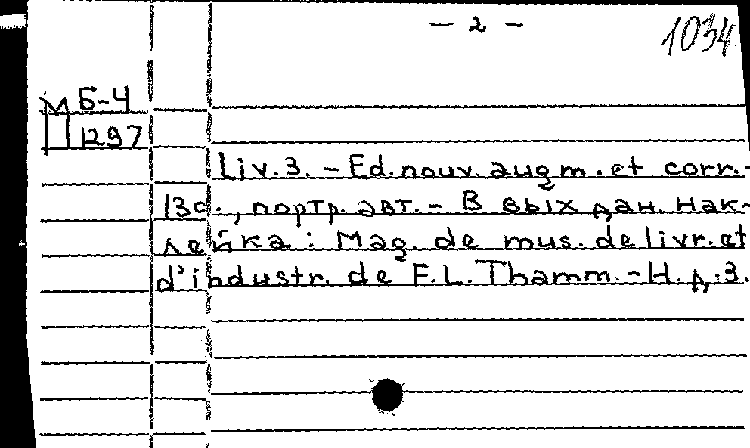 — 2 —
1034
М Б-4
1297
Liv.3. – Ed.nouv.augm.et corr.-
13с., портр. авт. – В вых дан. нак-
лейка: Mag. de mus. de livr. et
d'industr. de F.L. Thamm. – Н.д.3.